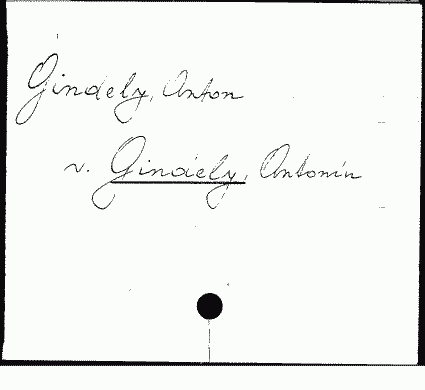 Gindely, Anton
v. Gindely, Antonín